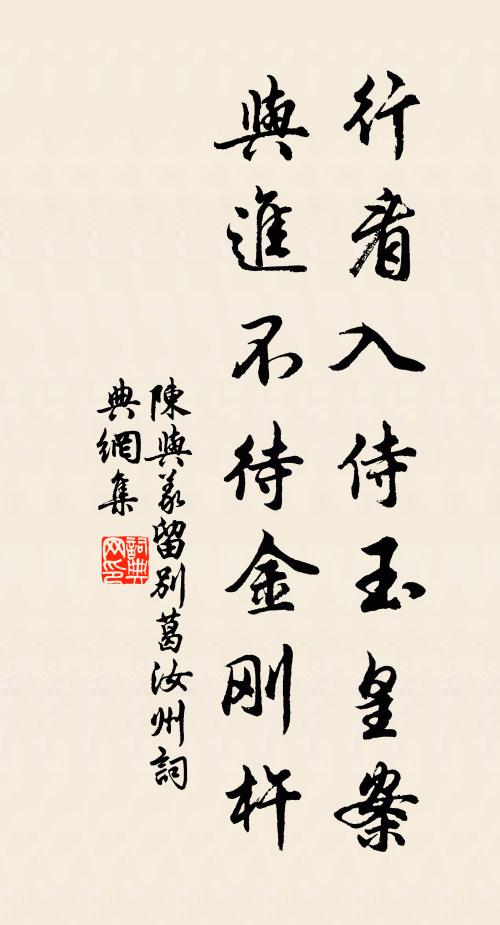 行看入侍玉皇案
與進不待金剛杵
陳與義留別葛汝州詞
典網集
詞典網印